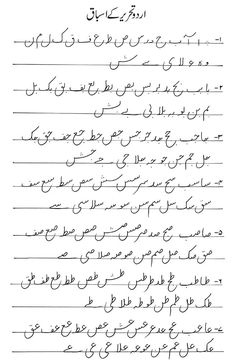 اردو تحریر کے اسباق
۱- ا آ ب ج د ر س ص ط ع ف ق ک ل م ن
و ہ ء لا ی ے ش
۲- با بب بج بد بر بس بص بط بع بف بق بک بل
بم بن بو بہ بلا بی بے بش
۳- حا حب حج حد حر حس حص حط حع حف حق حک
حل حم حن حو حہ حلا حی حے حش
۴- سا سب سج سد سر سس سش سص سط سع سف
سق سک سل سم سن سو سہ سلا سی سے
۵- صا صب صج صد صر صس صش صص صط صع صف
صق صک صل صم صن صو صہ صلا صی صے
۶- طا طب طج طد طر طس طش طص طط طع طف طق
طک طل طم طن طو طہ طلا طی طے
۷- عا عب عج عد عر عس عش عص عط عع عف عق
عک عل عم عن عو عہ علا عی عے